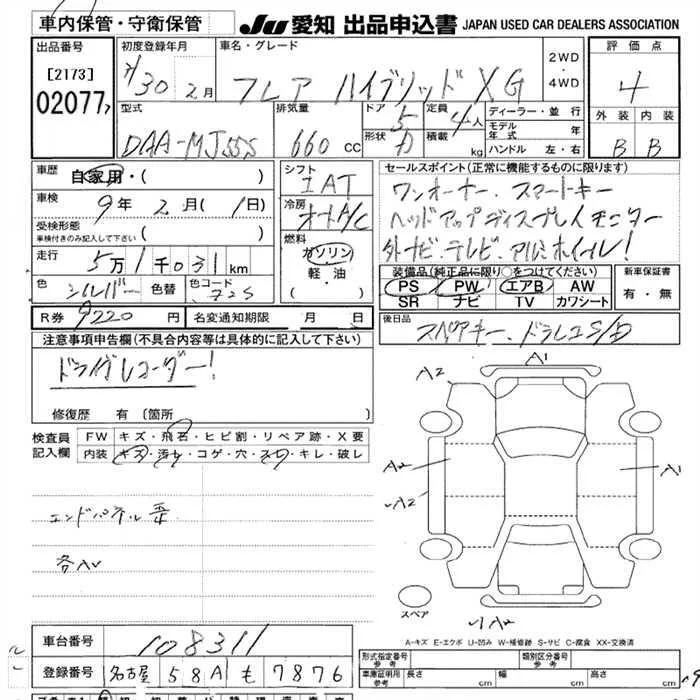 車内保管・守衛保管
JU 愛知 出品申込書 JAPAN USED CAR DEALERS ASSOCIATION
出品番号
[2173]
02077
初度登録年月
30 2月
車名・グレード
フレア ハイブリッド XG
2WD
・
4WD
評価点
4
外装 内装
B B
型式
DAA-MJ55S
排気量
660 cc
ドア 5
形状
定員 4人
積載 kg
ディーラー・並行
モデル年式 年
ハンドル 左・右
車歴 自家用・( )
車検 9年 2月 (1日)
受検形態
車検付きのみ記入して下さい ( )
走行 5万1千031km
色 シルバー 色替 色コード Z2S
シフト
IAT
冷房
オートA/C
燃料
ガソリン
軽・油
・( )
セールスポイント(正常に機能するものに限ります)
ワンオーナー、スマートキー
ヘッドアップディスプレイモニター
外ナビ、テレビ、アルミホイール!
装備品(純正品に限り○をつけてください)
PS PW エアB AW
SR ナビ TV カワシート
新車保証書
有・無
R券 9220 円 名変通知期限 月 日
後日品
スペアキー、ドラレコS/D
注意事項申告欄(不具合内容等は具体的に記入して下さい)
ドライブレコーダー!
修復歴 有〔箇所 〕
検査員
記入欄
FW キズ・飛石・ヒビ割・リペア跡・X要
内装 キズ・汚れ・コゲ・穴・スレ・キレ・破レ
エンドパネル
各AU
A2 A1
A2 A1
A2
A2
スペア
A-キズ E-エクボ U-凹み W-補修跡 S-サビ C-腐食 XX-交換済
車台番号 108311
登録番号 名古屋 58A も 7876
形式指定番号
参考
類別区分番号
参考
車庫証明用
参考
長さ cm 幅 cm 高さ cm